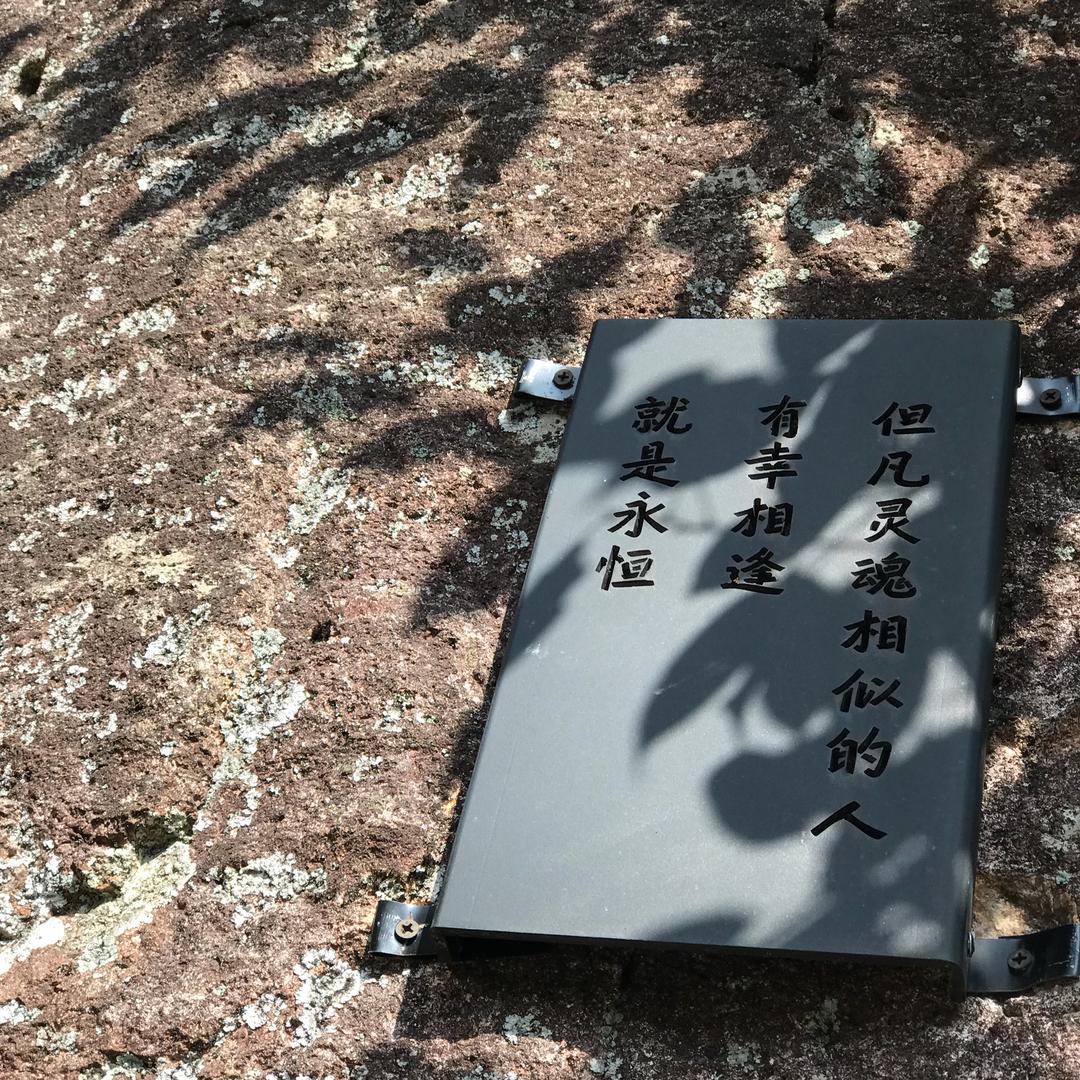 但凡灵魂相似的人
有幸相逢
就是永恒